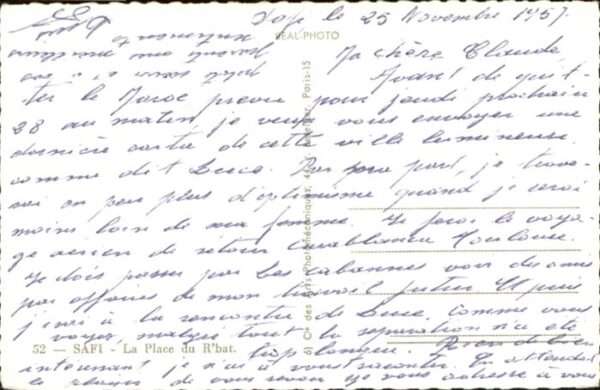 Safi le 25 Novembre 1957.
REAL-PHOTO
Ma chère Claude
Avant de quit-
ter le Maroc prévu pour jeudi prochain
28 au matin je veux vous envoyer une
dernière carte de cette ville lumineuse
comme dit Luce. Pour ma part, je trouve-
rai un peu plus d'optimisme quand je serai
moins loin de ma femme. Je ferai le voya-
ge aérien de retour Casablanca Toulouse.
Je dois passer par Les Cabannes voir des amis
par affaires de mon travail futur. Et puis
j'irai à la rencontre de Luce. Comme vous
voyez malgré tout la séparation n'a été
52 — SAFI - La Place du R'bat.
trop longue. de bien
intéressant je n'ai à vous raconter. En attendant
le plaisir de vous revoir je vous adresse à vous
Cie des Arts Photomécaniques, Paris-15